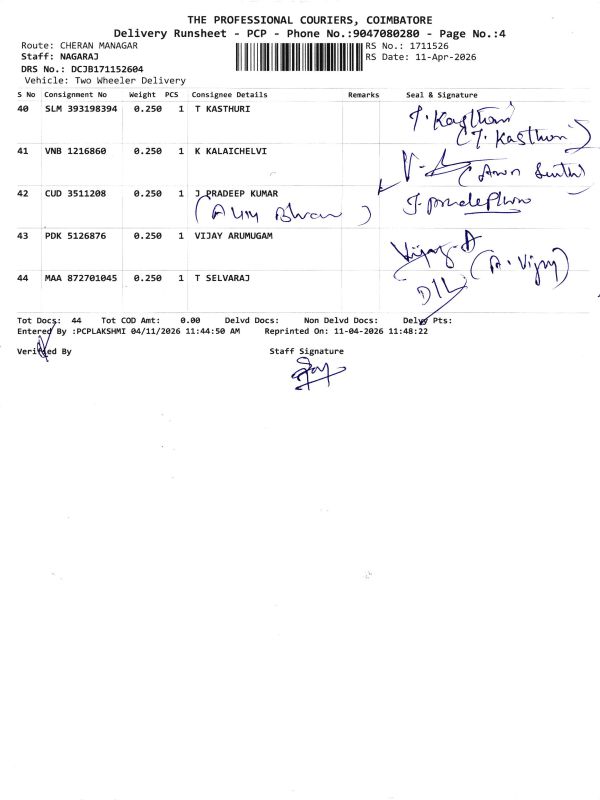 THE PROFESSIONAL COURIERS, COIMBATORE
Delivery Runsheet - PCP - Phone No.:9047080280 - Page No.:4
Route: CHERAN MANAGAR RS No.: 1711526
Staff: NAGARAJ RS Date: 11-Apr-2026
DRS No.: DCJB171152604
Vehicle: Two Wheeler Delivery
S No Consignment No Weight PCS Consignee Details Remarks Seal & Signature
40 SLM 393198394 0.250 1 T KASTHURI T. Kasthuri
(T. Kasthuri)
41 VNB 1216860 0.250 1 K KALAICHELVI
42 CUD 3511208 0.250 1 J PRADEEP KUMAR J. Pradeep
43 PDK 5126876 0.250 1 VIJAY ARUMUGAM Vijay. A
(A. Vijay)
44 MAA 872701045 0.250 1 T SELVARAJ D/L
Tot Docs: 44 Tot COD Amt: 0.00 Delvd Docs: Non Delvd Docs: Delvy Pts:
Entered By :PCPLAKSHMI 04/11/2026 11:44:50 AM Reprinted On: 11-04-2026 11:48:22
Verified By Staff Signature